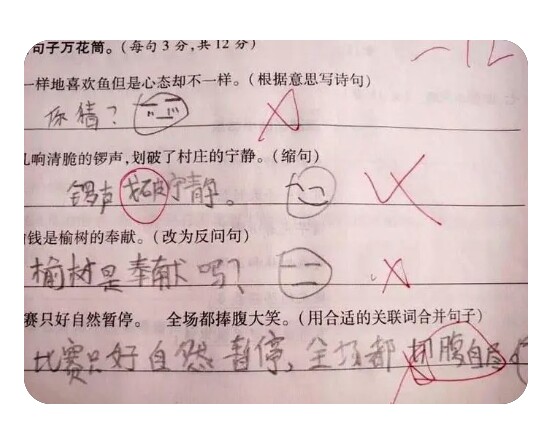 句子万花筒。(每句3分,共12分)
-12
一样地喜欢鱼但是心态却不一样。(根据意思写诗句)
你猜?
响清脆的锣声,划破了村庄的宁静。(缩句)
锣声划破宁静。
钱是榆树的奉献。(改为反问句)
榆树是奉献吗?
赛只好自然暂停。 全场都捧腹大笑。(用合适的关联词合并句子)
比赛只好自然暂停,全场都切腹自尽